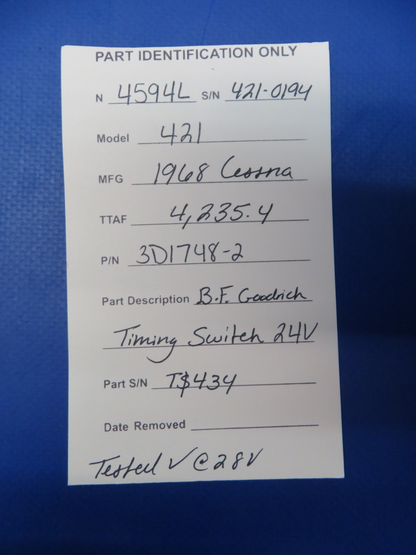 PART IDENTIFICATION ONLY
N 4594L S/N 421-0194
Model 421
MFG 1968 Cessna
TTAF 4,235.4
P/N 3D1748-2
Part Description B.F. Goodrich
Timing Switch 24V
Part S/N T$434
Date Removed
Tested √ @ 28V